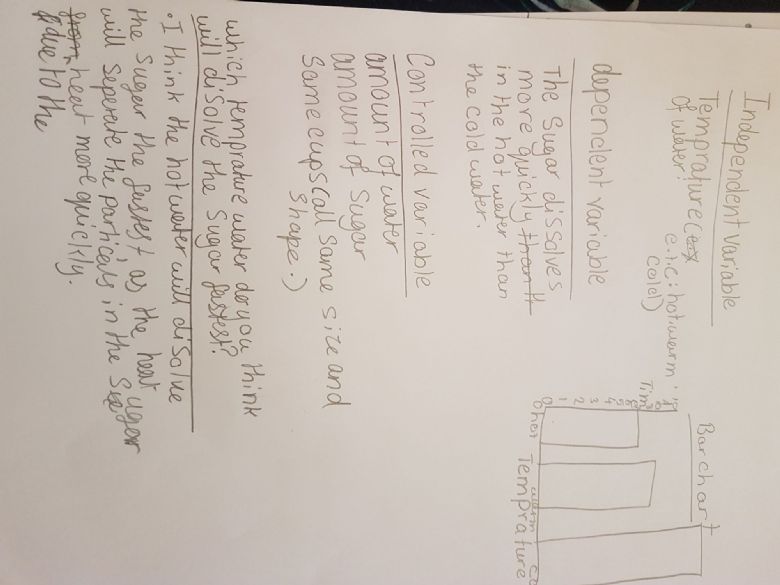 Independent variable
Temprature (
of water!
e.t.c: hot, warm,
cold)
dependent variable
The sugar dissolves
more quickly than H
in the hot water than
the cold water.
Controlled variable
amount of water
amount of sugar
same cups (all same size and
shape.)
which temprature water do you think
will disolve the sugar fastest?
. I think the hot water will disolve
the sugar the fastest as the heat
will seperate the particals in the sugar
heat more quickly.
due to the
Bar chart
Time
0
1
2
3
4
5
hot
warm
Temprature